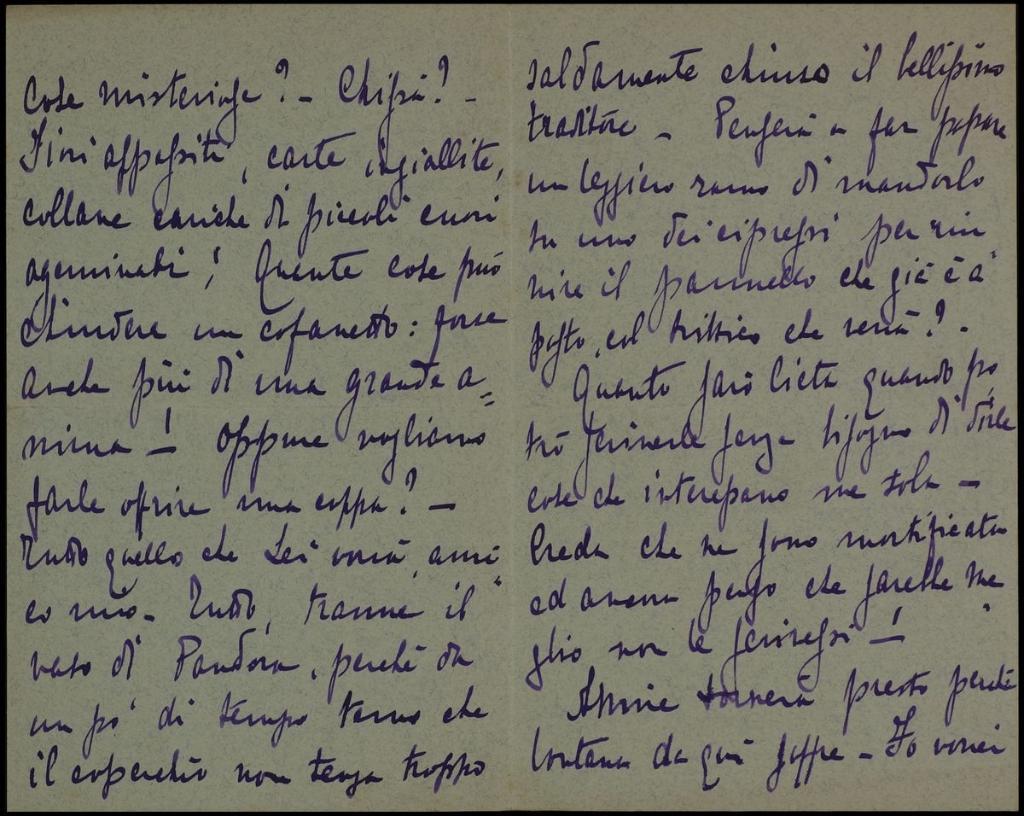 Cose misteriose? - Chissà? -
Fiori appassiti, carte ingiallite,
collane cariche di piccoli cuori
ageminati! Quante cose può
chiudere un cofanetto: forse
anche più di una grande a=
nima - ! oppure vogliamo
farle offrire una coppa? -
Tutto quello che Lei vorrà, ami
co mio - Tutto, tranne il
vaso di Pandora, perchè da
un po' di tempo temo che
il coperchio non tenga troppo
saldamente chiuso il bellissimo
traditore - Penserà a far posare
un leggiero ramo di mandorlo
su uno dei cipressi per riu
nire il pannello che già è a
posto, col trittico che verrà? -
Quanto sarò lieta quando po
trò scriverle senza bisogno di dirle
cose che interessano me sola -
Creda che ne sono mortificata
ed ancora penso che sarebbe me
glio non le scrivessi - !
tornerà presto perchè
lontana da qui soffre - Io vorrei